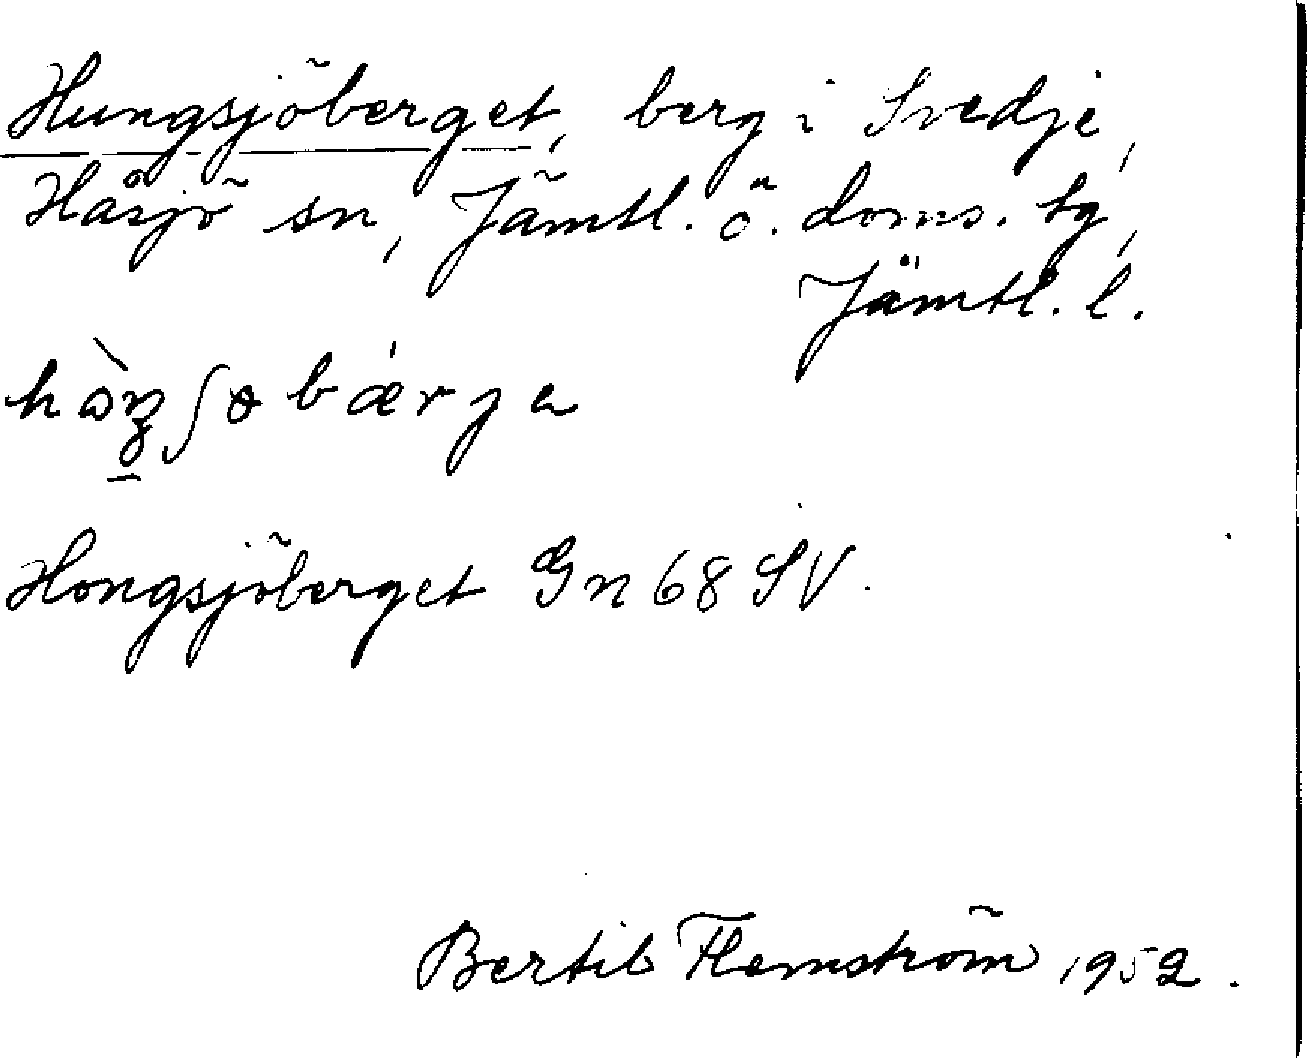 Hungsjöberget, berg i Svedje,
Håsjö sn, Jämtl. ö. doms. tg,
Jämtl. l.
Hongsjöberget Gn 68 SV.
Bertil Flemström 1952.